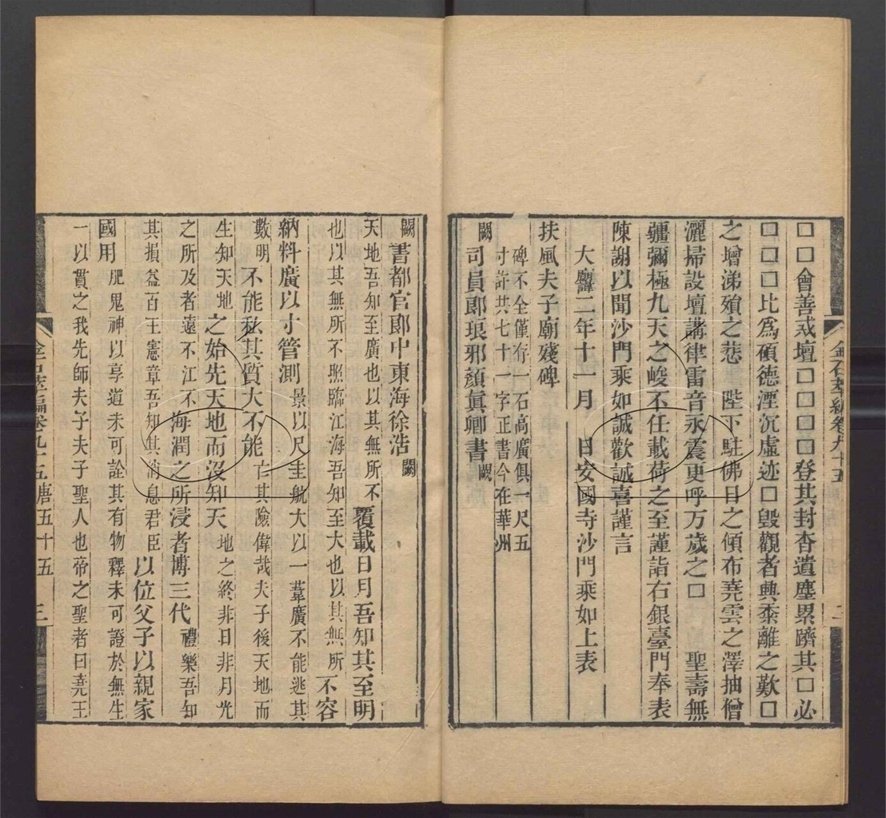 □□會善戒壇□□□□登其封杳遺塵累躋其□必
□□□比爲碩德湮沉虛迹□毀觀者興黍離之歎□
之增涕殞之悲　陛下駐佛日之傾布堯雲之澤抽僧
灑掃設壇講律雷音永震更呼万歲之□　聖壽無
疆彌極九天之峻不任戴荷之至謹詣右銀臺門奉表
陳謝以聞沙門乘如誠歡誠喜謹言
大曆二年十一月　日安國寺沙門乘如上表
扶風夫子廟殘碑
碑不全僅存一石高廣俱一尺五
寸許共七十一字正書今在華州
闕司員郎琅邪顏眞卿書闕
金石萃編卷九十五
二
闕書都官郎中東海徐浩闕
天地吾知至廣也以其無所不覆載日月吾知其至明
也以其無所不照臨江海吾知至大也以其無所不容
納料廣以寸管測景以尺圭航大以一葦廣不能逃其
數明不能私其質大不能亡其險偉哉夫子後天地而
生知天地之始先天地而沒知天地之終非日非月光
之所及者遠不江不海潤之所浸者博三代禮樂吾知
其損益百王憲章吾知其消息君臣以位父子以親家
國用肥鬼神以享道未可詮其有物釋未可證於無生
一以貫之我先師夫子夫子聖人也帝之聖者曰堯王
金石萃編卷九十五　唐五十五
三